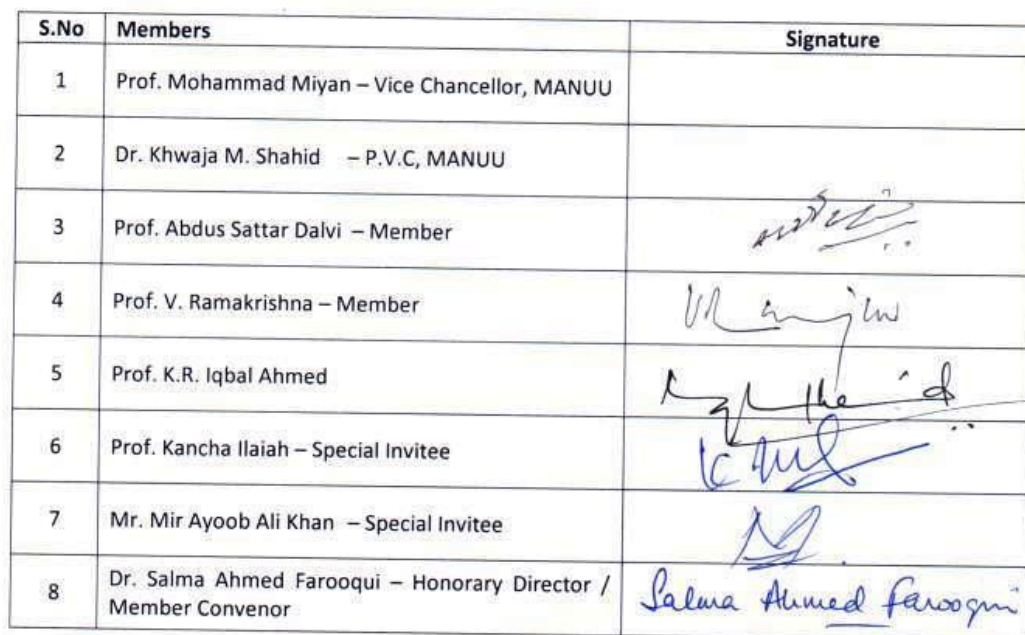 S.No Members Signature
1 Prof. Mohammad Miyan – Vice Chancellor, MANUU
2 Dr. Khwaja M. Shahid – P.V.C, MANUU
3 Prof. Abdus Sattar Dalvi – Member
4 Prof. V. Ramakrishna – Member
5 Prof. K.R. Iqbal Ahmed
6 Prof. Kancha Ilaiah – Special Invitee
7 Mr. Mir Ayoob Ali Khan – Special Invitee
8 Dr. Salma Ahmed Farooqui – Honorary Director / Salma Ahmed Farooqui
Member Convenor